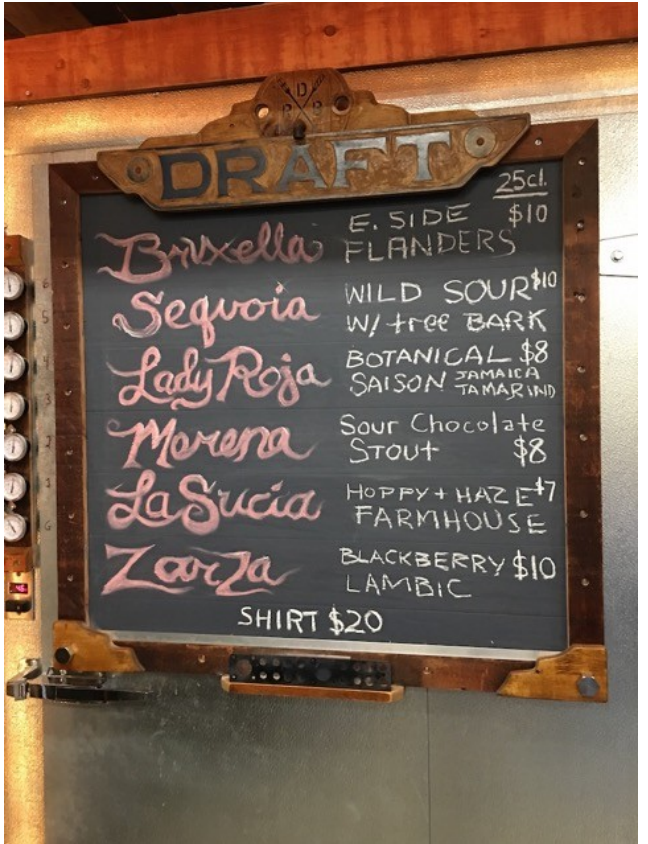 D
P B
DRAFT
25cl.
Bruxella E. SIDE $10
FLANDERS
Sequoia WILD SOUR $10
W/ tree BARK
Lady Roja BOTANICAL $8
SAISON JAMAICA
TAMARIND
Morena Sour Chocolate
STOUT $8
La Sucia HOPPY + HAZE $7
FARMHOUSE
Zarza BLACKBERRY $10
LAMBIC
SHIRT $20
6
5
4
3
2
1
G